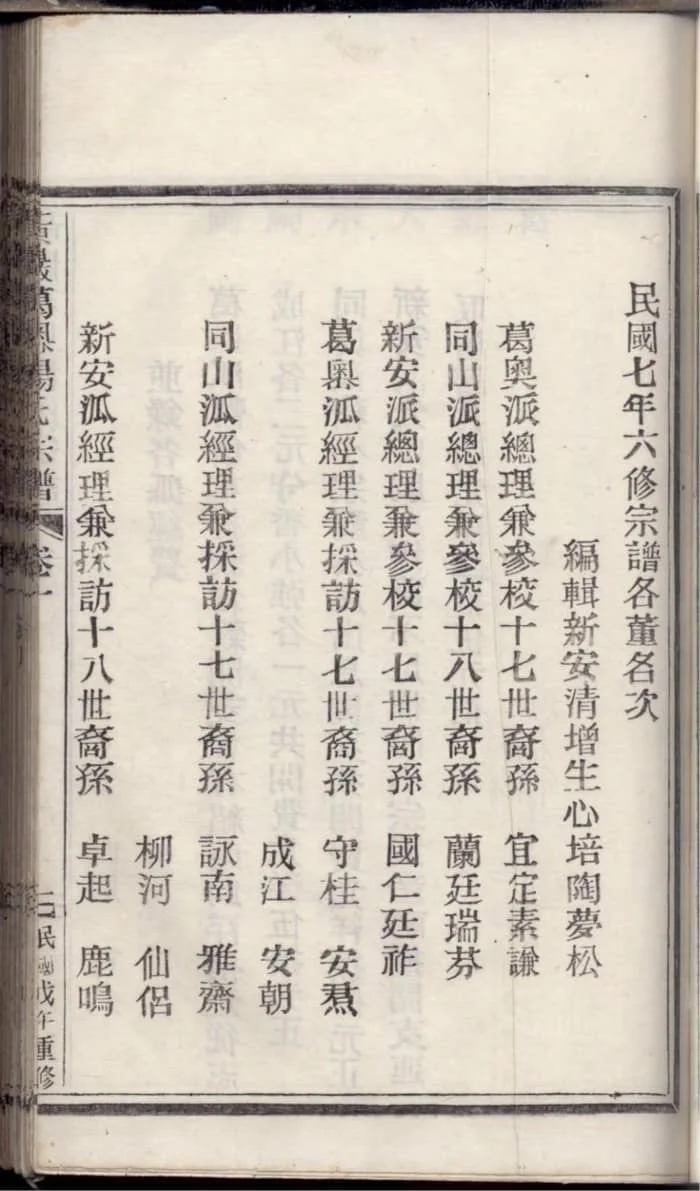 民國七年六修宗譜各董名次
編輯新安清增生心培陶夢松
葛奧派總理兼參校十七世裔孫 宜定素謙
同山派總理兼參校十八世裔孫 蘭廷瑞芬
新安派總理兼參校十七世裔孫 國仁廷祚
葛奧派經理兼採訪十七世裔孫 守桂 安燾
成江 安朝
同山派經理兼採訪十七世裔孫 詠南 雅齋
柳河 仙侶
新安派經理兼採訪十八世裔孫 卓起 鹿鳴
葛奧楊氏宗譜 卷一 民國戊午重修